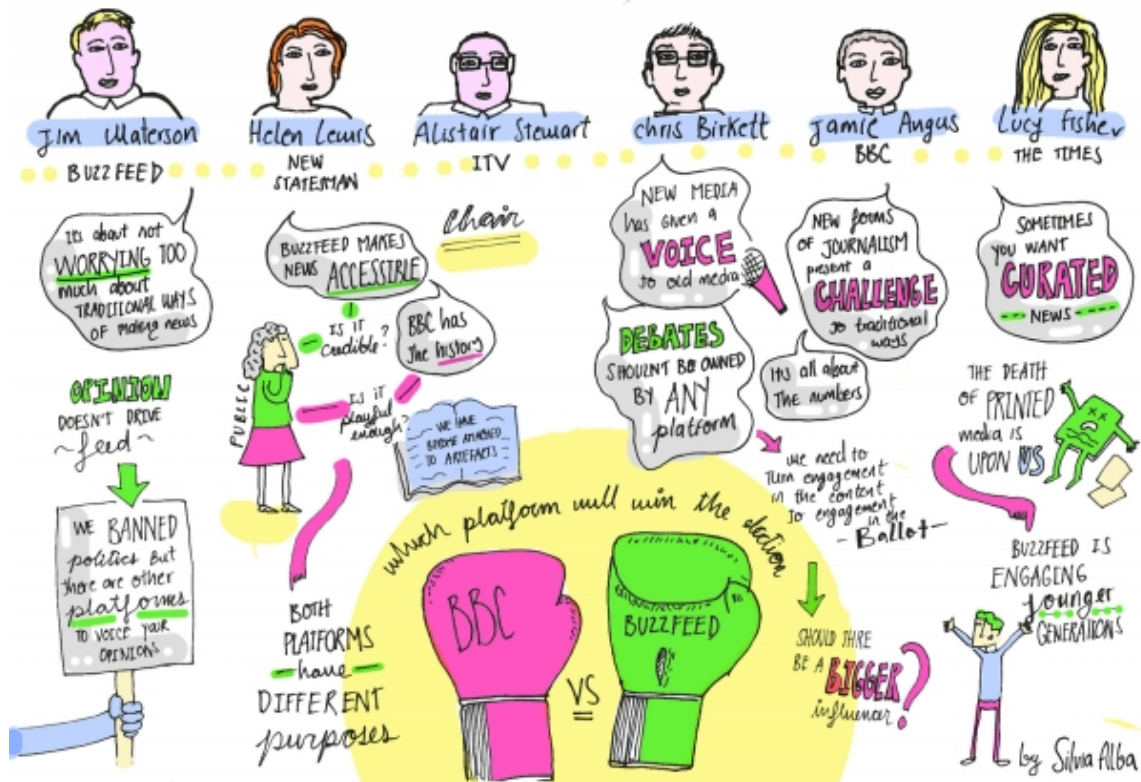 Jim Waterson
BUZZFEED
Helen Lewis
NEW
STATESMAN
Alistair Stewart
ITV
Chair
chris Birkett
Jamie Angus
BBC
Lucy Fisher
THE TIMES
its about not
WORRYING TOO
much about
TRADITIONAL WAYS
OF making news
OPINION
DOESN'T DRIVE
~ feed ~
WE BANNED
politics BUT
there are other
platforms
TO VOICE YOUR
OPINIONS
BUZZFEED MAKES
NEWS ACCESSIBLE
IS IT
credible?
BBC has
the history
PUBLIC
IS IT
playful
enough?
WE HAVE
BECOME ATTACHED
TO ARTEFACTS
BOTH
PLATFORMS
- have -
DIFFERENT
purposes
NEW MEDIA
has given a
VOICE
to old media
DEBATES
SHOULN'T BE OWNED
BY ANY
platform
NEW forms
OF JOURNALISM
present a
CHALLENGE
to traditional
ways
It's all about
The numbers
we need to
turn engagement
in the content
to engagement
in the
- Ballot -
SHOULD THRE
BE A BIGGER
influencer?
SOMETIMES
YOU WANT
CURATED
NEWS
THE DEATH
OF PRINTED
media is
UPON US
BUZZFEED IS
ENGAGING
younger
GENERATIONS
which platform will win the election
BBC
VS
BUZZFEED
by Silvia Alba